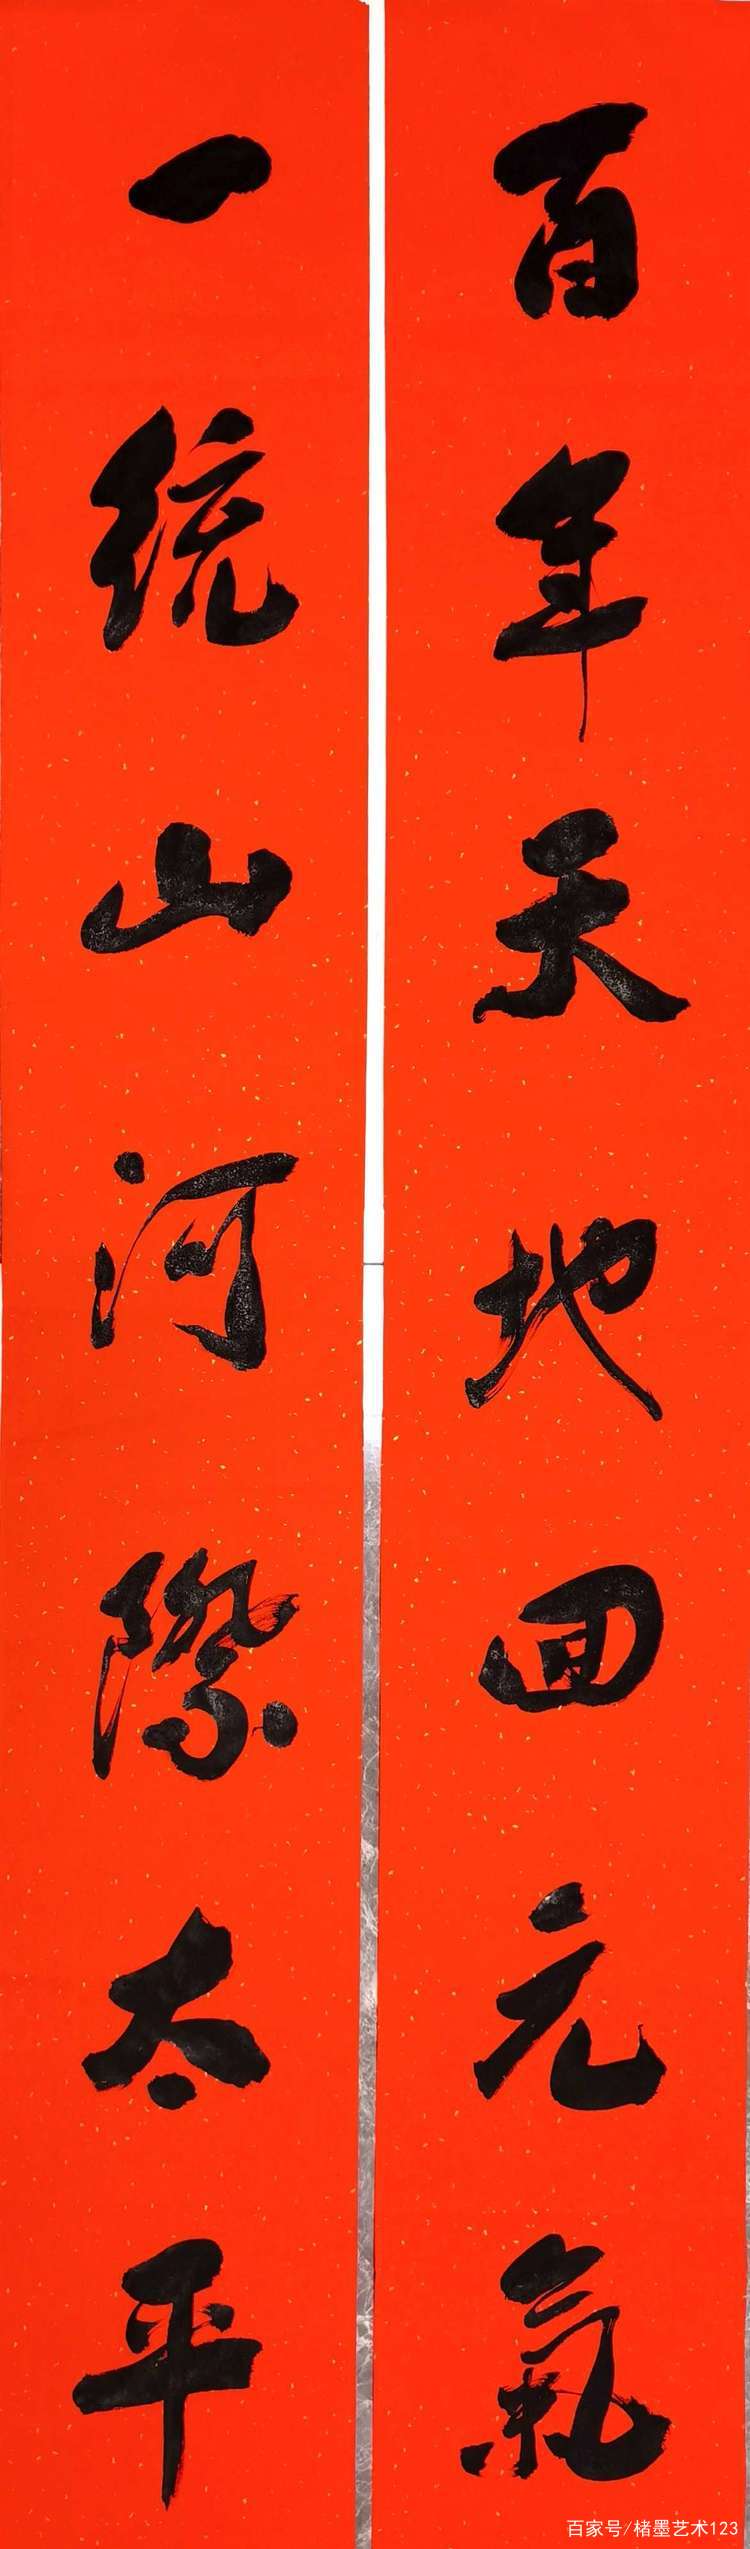 百年天地回元氣
一統山河際太平
百家号/楮墨艺术123